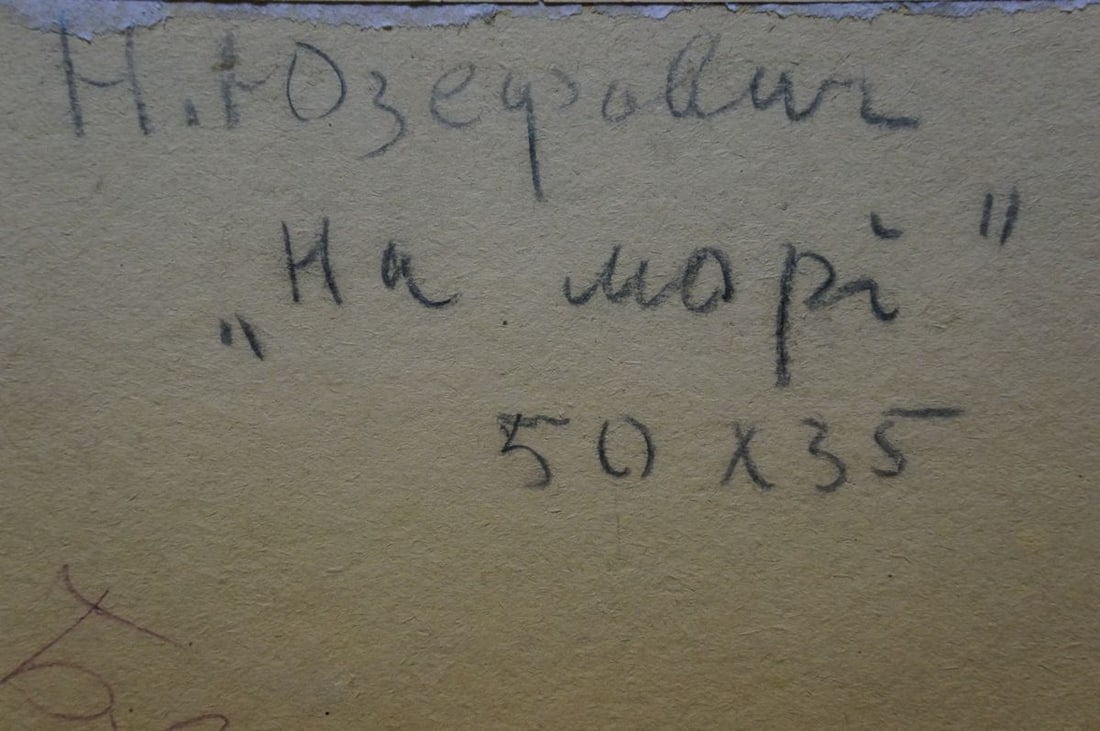 Н. Юзефович
„На морі"
50 x 35